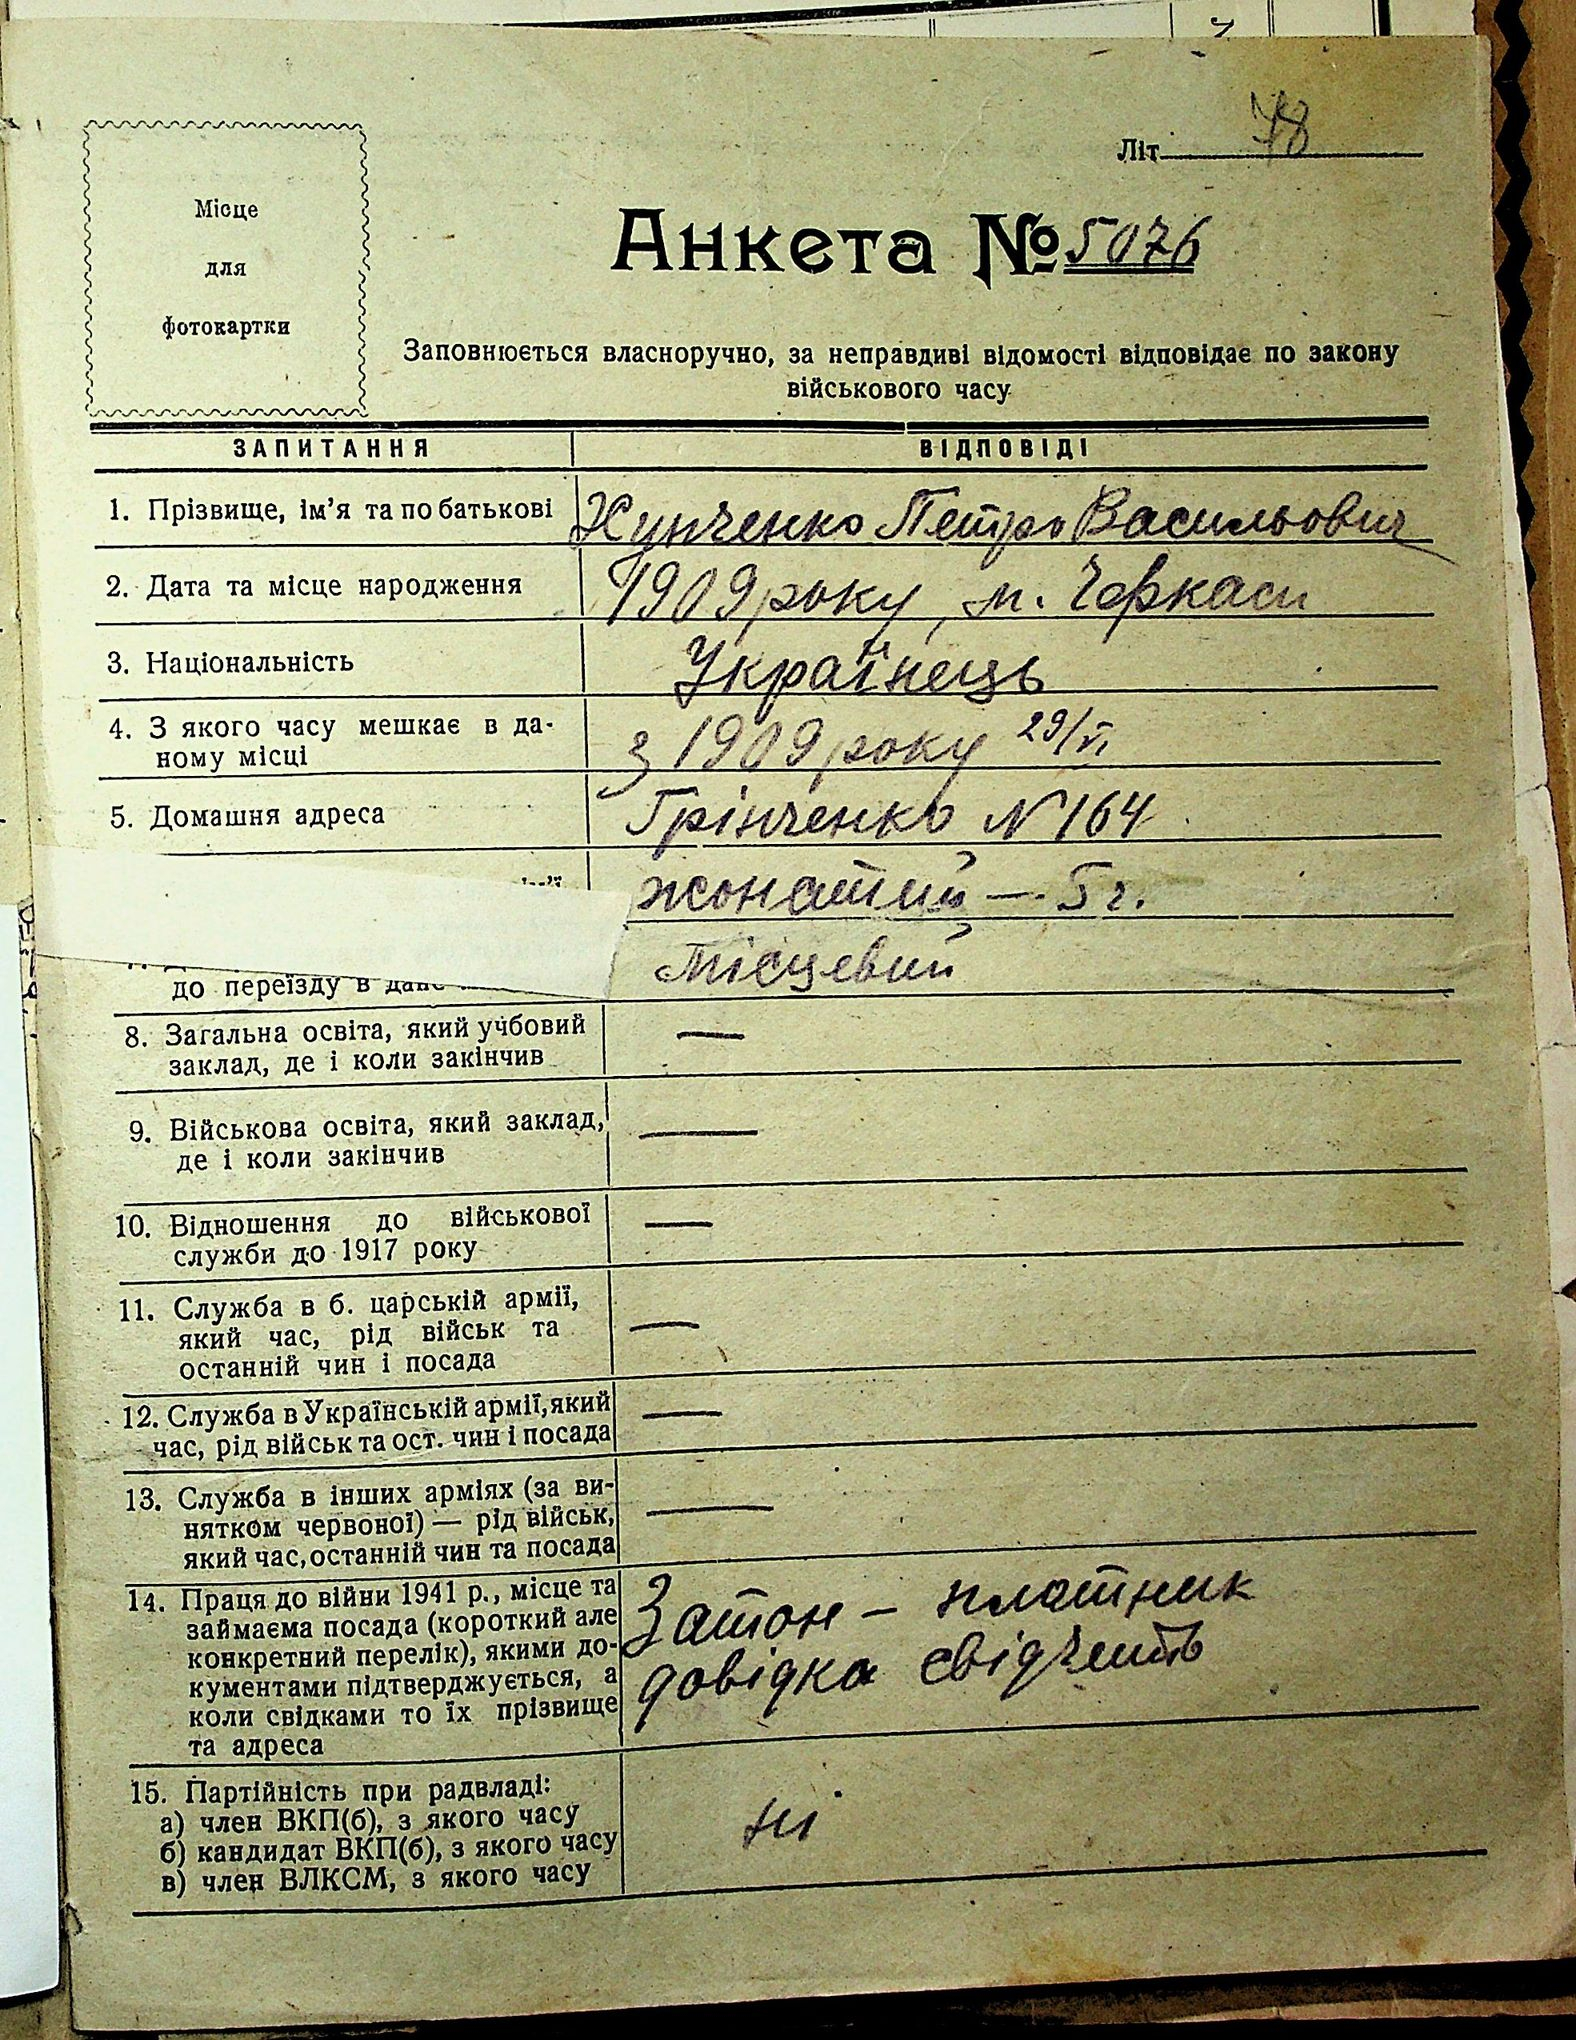 Літ 78
Місце
для
фотокартки
Анкета № 5076
Заповнюється власноручно, за неправдиві відомості відповідає по закону
військового часу
ЗАПИТАННЯ ВІДПОВІДІ
1. Прізвище, ім'я та по батькові Петро Васильович
2. Дата та місце народження 1909 року, м. Черкаси
3. Національність Українець
4. З якого часу мешкає в да-
ному місці з 1909 року 29/VI
5. Домашня адреса Грінченко № 164
жонатий — 5 г.
Місцевий
до переїзду в дане
8. Загальна освіта, який учбовий —
заклад, де і коли закінчив
9. Військова освіта, який заклад, —
де і коли закінчив
10. Відношення до військової —
служби до 1917 року
11. Служба в б. царській армії,
який час, рід військ та —
останній чин і посада
12. Служба в Українській армії, який —
час, рід військ та ост. чин і посада
13. Служба в інших арміях (за ви- —
нятком червоної) — рід військ,
який час, останній чин та посада
14. Праця до війни 1941 р., місце та Затон – платник
займаєма посада (короткий але довідка свідчить
конкретний перелік), якими до-
кументами підтверджується, а
коли свідками то їх прізвище
та адреса
15. Партійність при радвладі: ні
а) член ВКП(б), з якого часу
б) кандидат ВКП(б), з якого часу
в) член ВЛКСМ, з якого часу